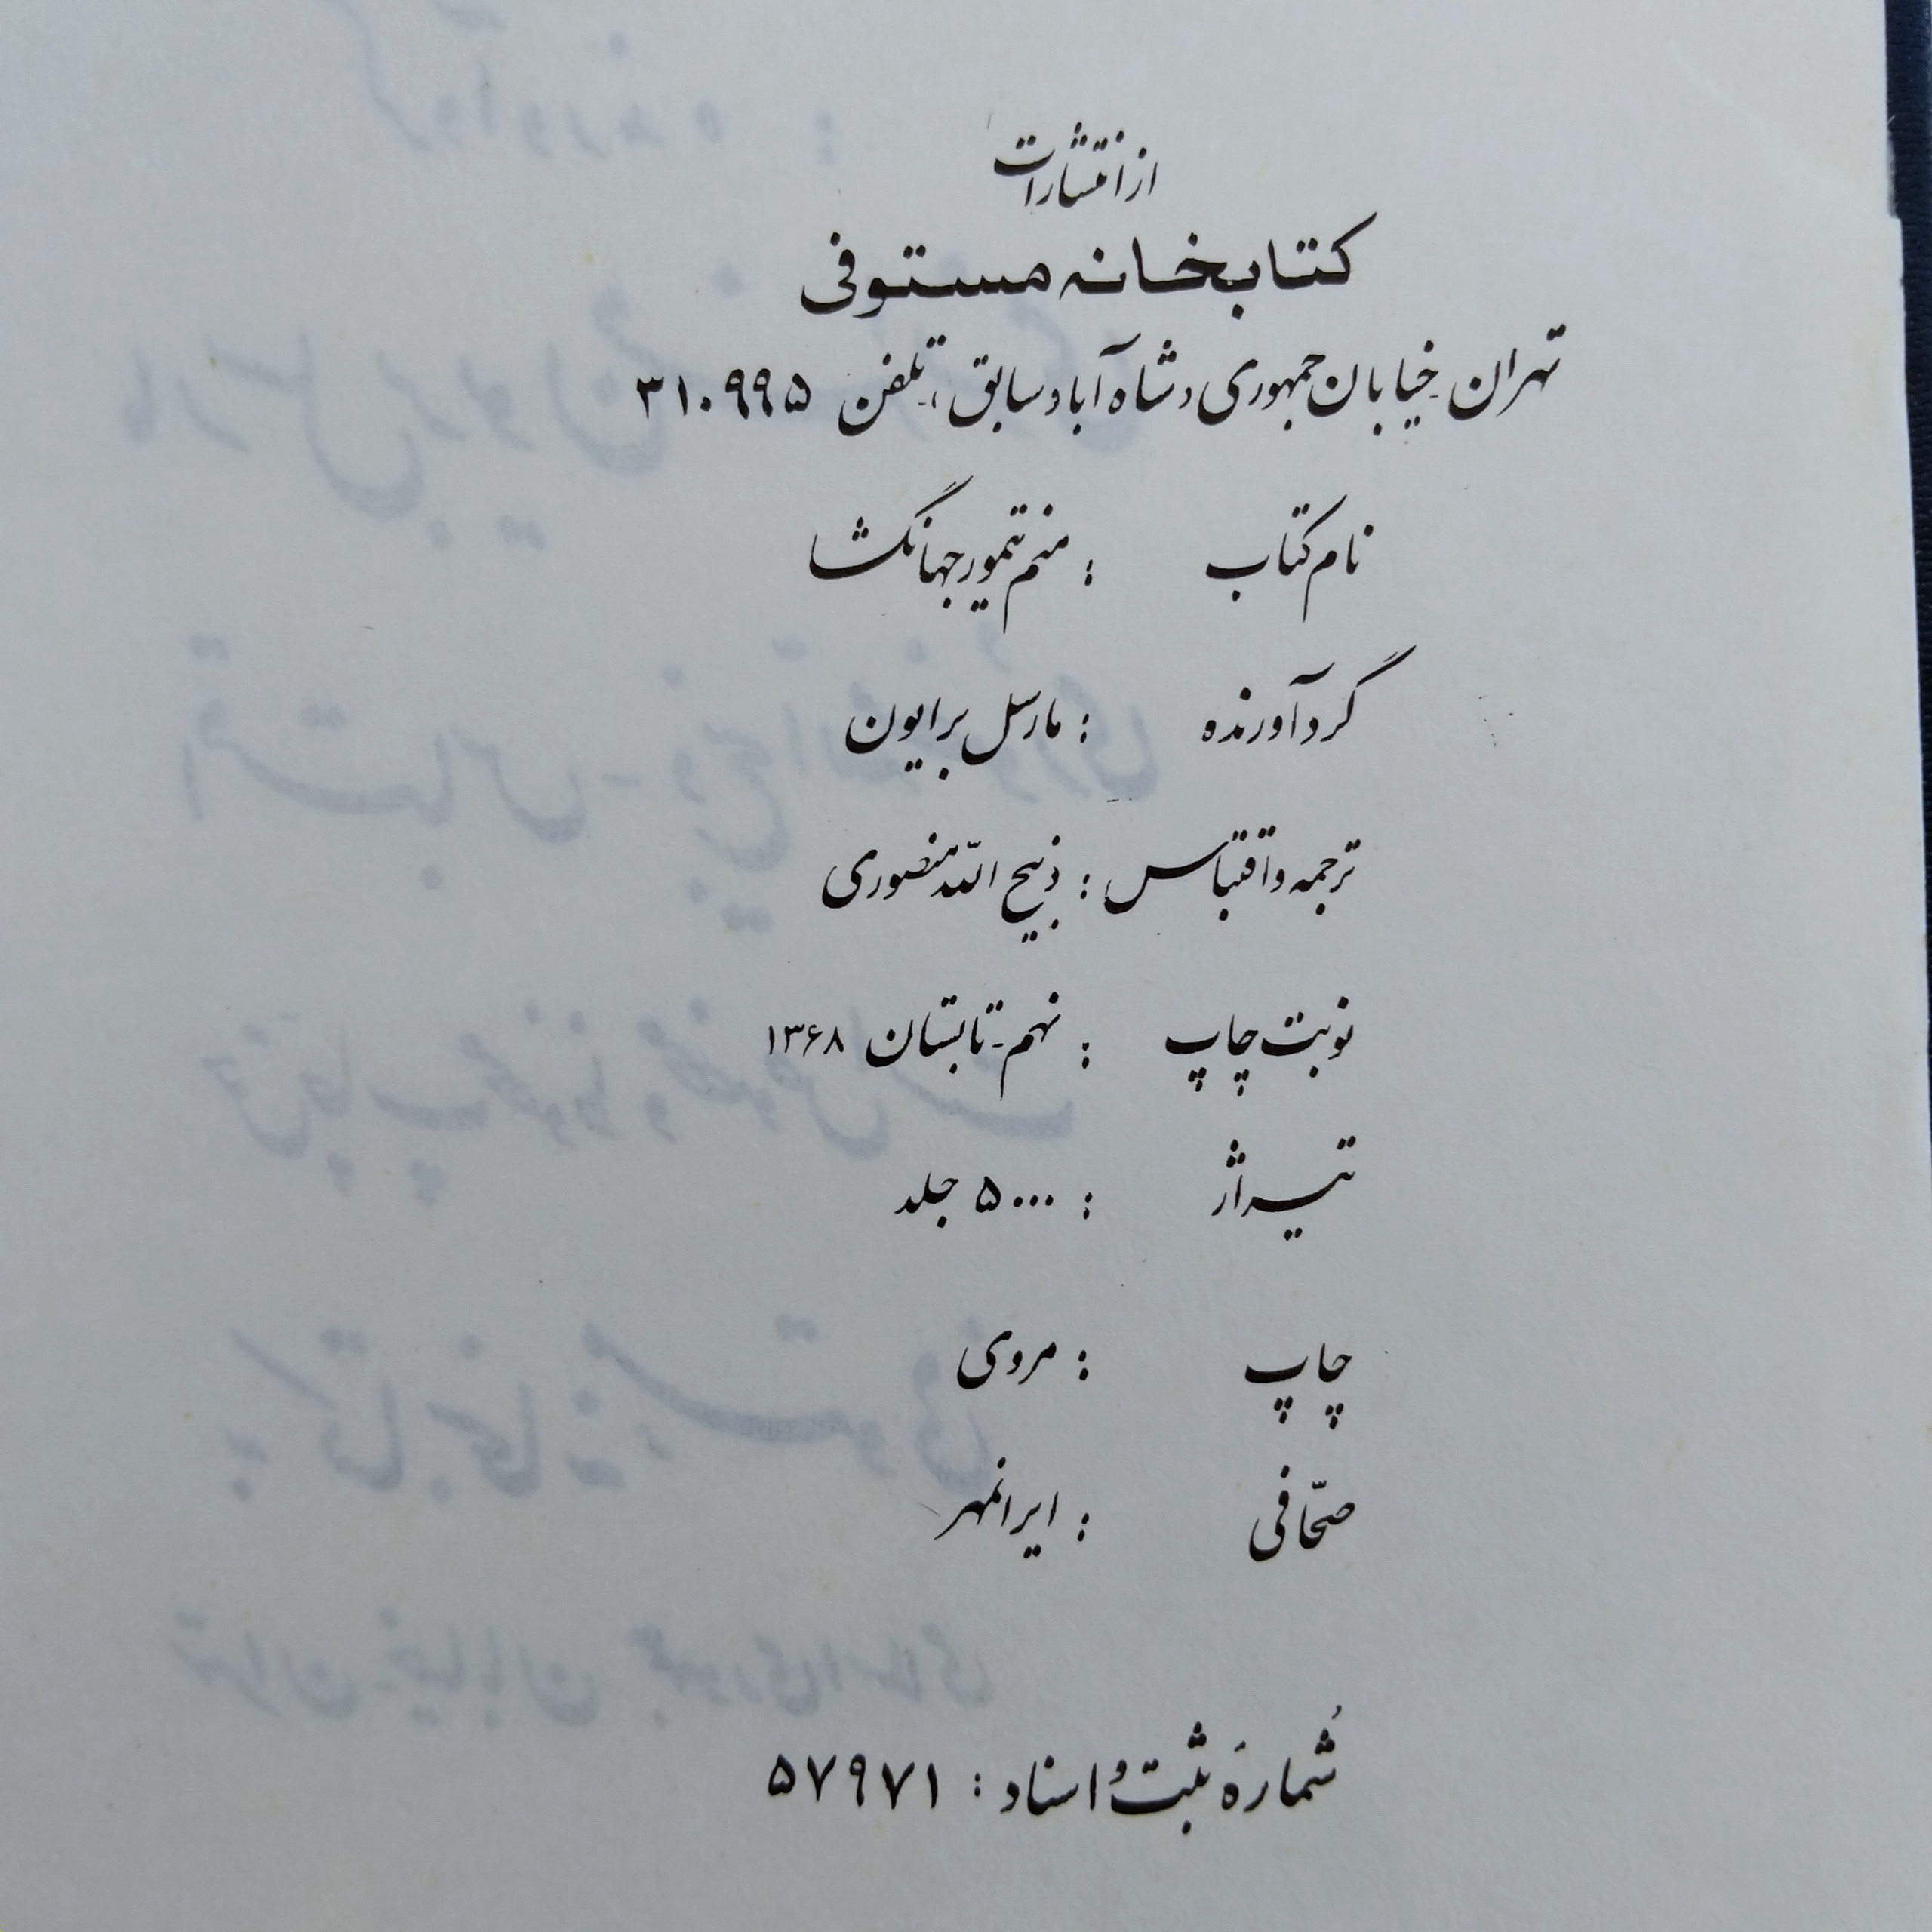 از انتشارات
کتابخانه مستوفی
تهران - خیابان جمهوری «شاه آباد سابق» تلفن ۳۱۰۹۹۵
نام کتاب : منم تیمور جهانگشا
گردآورنده : مارسل بریون
ترجمه و اقتباس : ذبیح الله منصوری
نوبت چاپ : نهم - تابستان ۱۳۶۸
تیراژ : ۵۰۰۰ جلد
چاپ : مروی
صحّافی : ایرانمهر
شُمارهٔ ثبت و اسناد : ۵۷۹۷۱